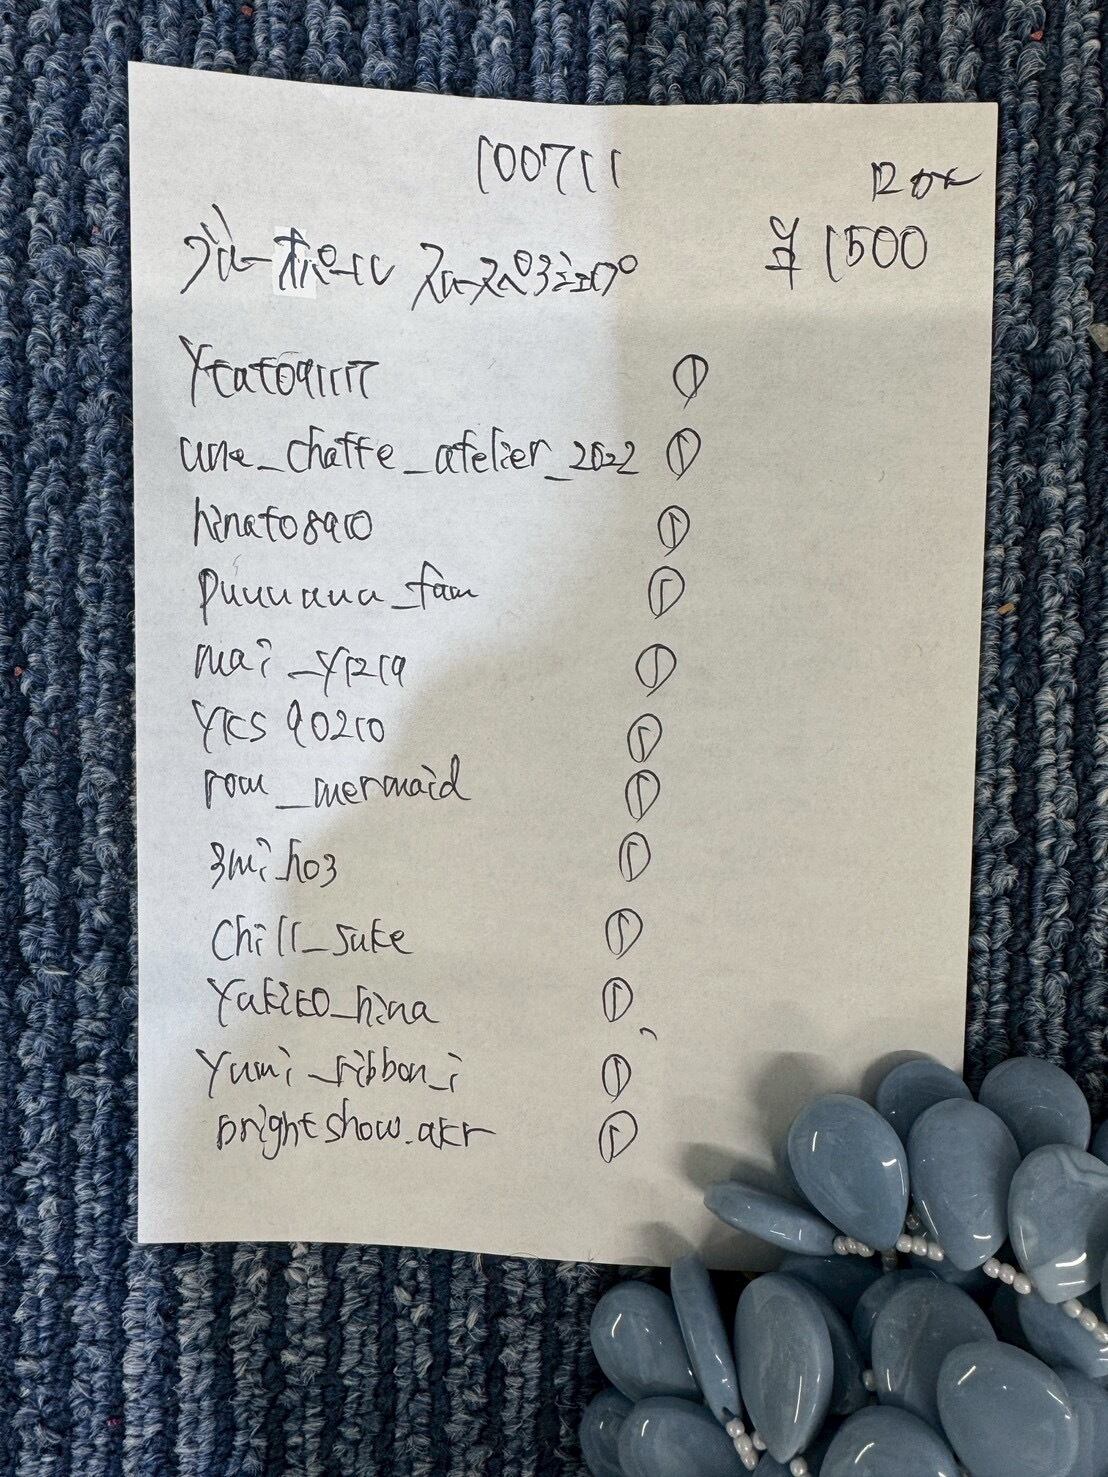 100711
12 pc
ブルーオパール スムースペアシェイプ ¥1500
ytat091117 ①
une_chatte_atelier_2022 ①
hinato8910 ①
puuuuuuu_fam ①
mai_y1219 ①
yks90210 ①
rom_mermaid ①
3mi_ho3 ①
chill_suke ①
yukiko_hina ①
yumi_ribbon_i ①
brightshow.akr ①